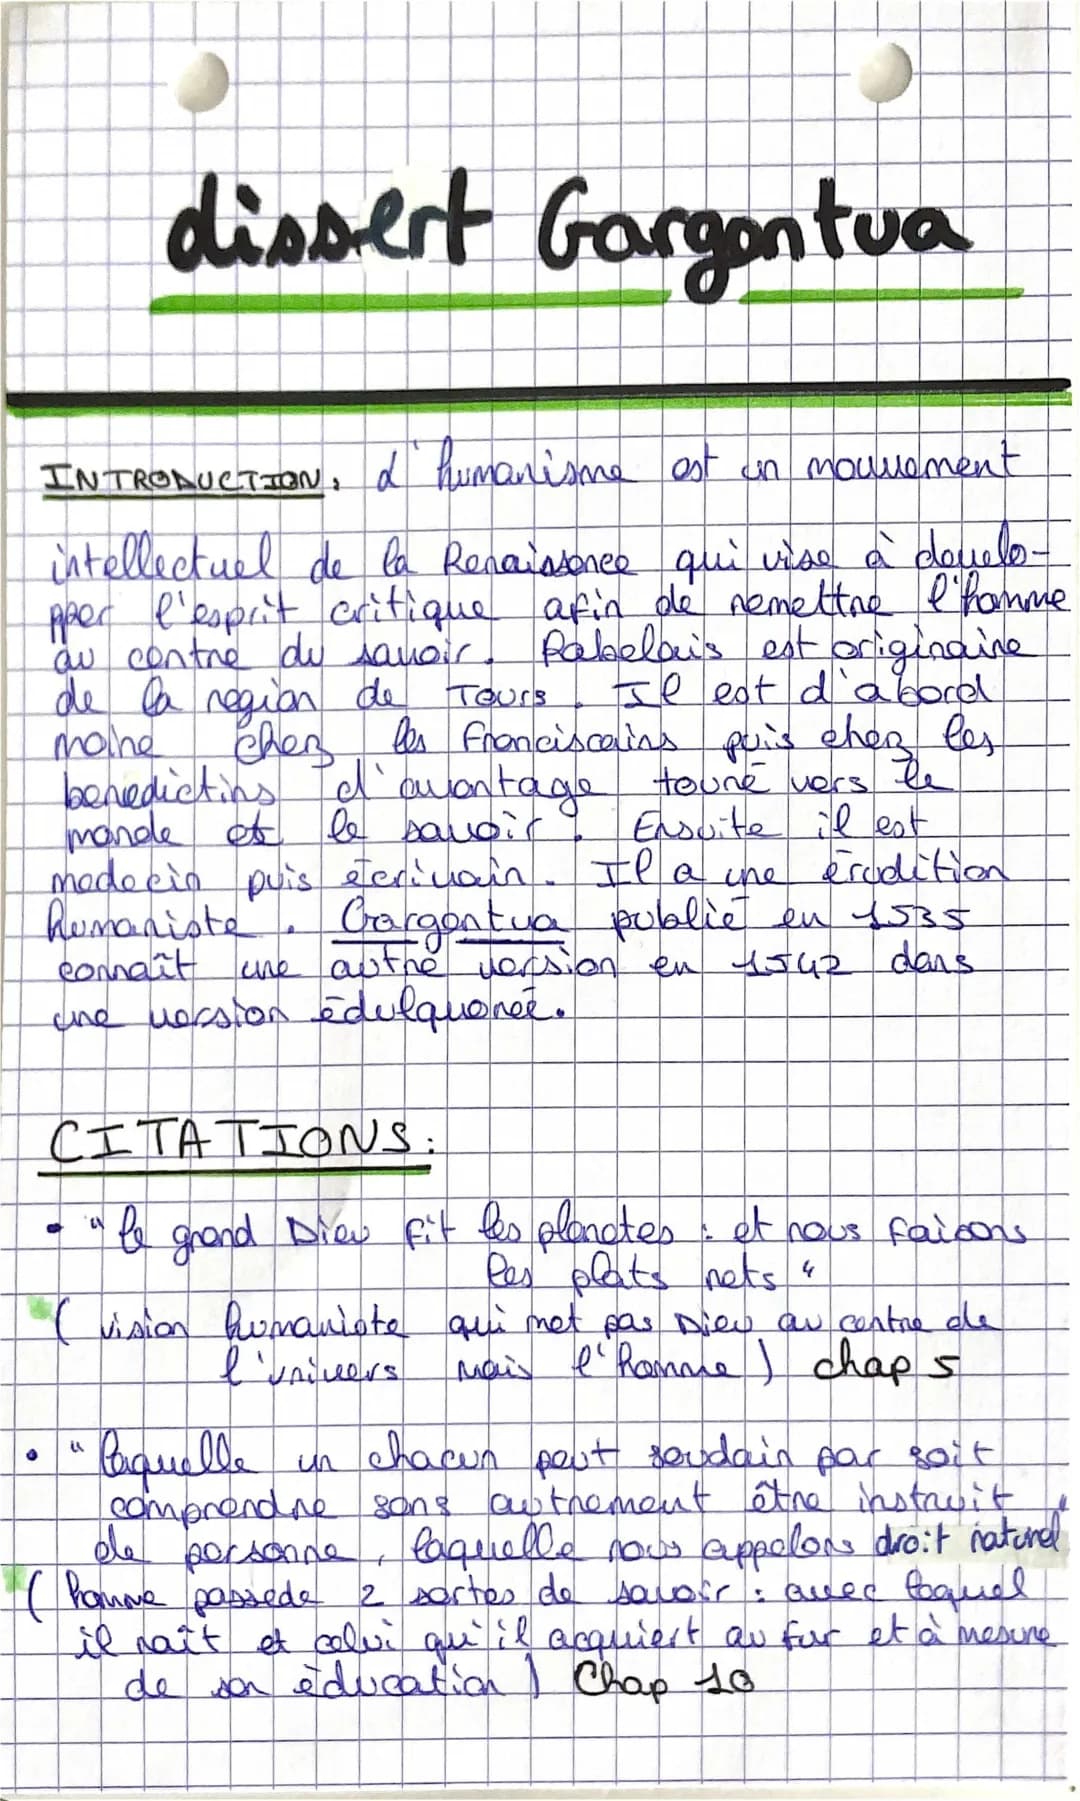 dissert Gargantua
INTRODUCTION: L'humanisme est un mouvement
intellectuel de la Renaissance qui vise à develo-
pper l'esprit critique afin de remettre l'homme
au centre du savoir. Rabelais est originaire
de la region de Tours. Il est d'abord
moine chez les Franciscains puis chez les
benedictins d'avantage tourné vers le
monde et le savoir. Ensuite il est
medecin puis écrivain. Il a une érudition
humaniste. Gargantua publié en 1535
connaît une autre version en 1542 dans
une version édulquoreé.
CITATIONS:
• "le grand Dieu fit les planetes : et nous faisons
les plats nets "
( vision humaniste qui met pas Dieu au centre de
l'univers mais l'homme ) chap 5
• "laquelle un chacun peut soudain par soit
comprendre sans autrement être instruit
de personne, laquelle nous appelons droit naturel
( homme possede 2 sortes de savoir : avec lequel
il naît et celui qu'il acquiert au fur et à mesure
de son éducation ) Chap 10